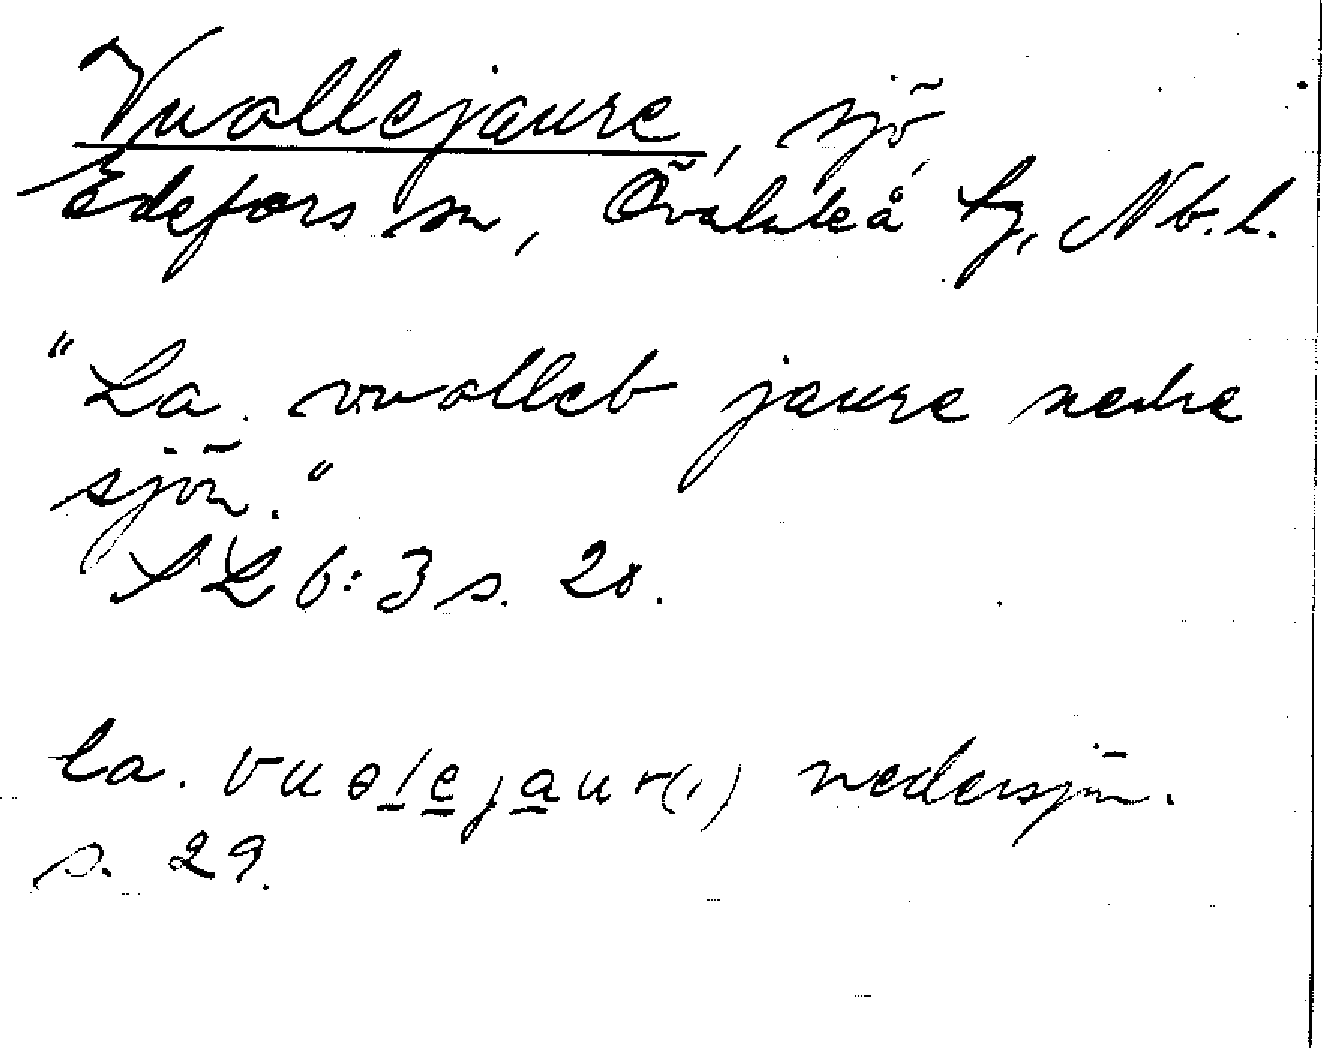 Vuollejaure, sjö,
Edefors sn, Överluleå tg, Nb.l.
"La. vuolleb jaure nedre
sjön."
SL 6:3 s. 28.
la. vuolejaur(i) nedersjön.
s. 29.